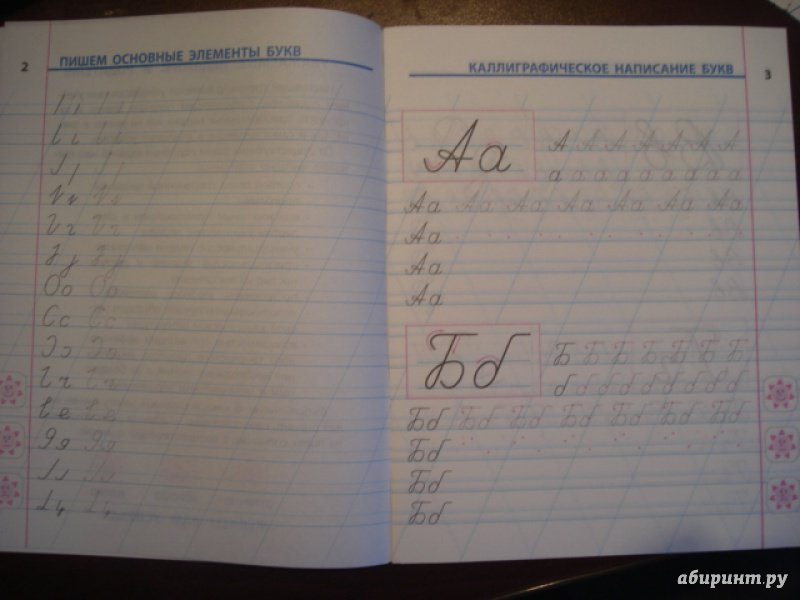 2
ПИШЕМ ОСНОВНЫЕ ЭЛЕМЕНТЫ БУКВ
Оо Оо
Сс Сс
КАЛЛИГРАФИЧЕСКОЕ НАПИСАНИЕ БУКВ
3
Аа
А А А А А А А
а а а а а а а а а
Аа Аа Аа Аа Аа Аа Аа
Аа
Аа
Аа
Бб
Б Б Б Б Б Б Б
б б б б б б б б б
Бб Бб Бб Бб Бб Бб Бб
Бб
Бб
Бб
абиринт.ру